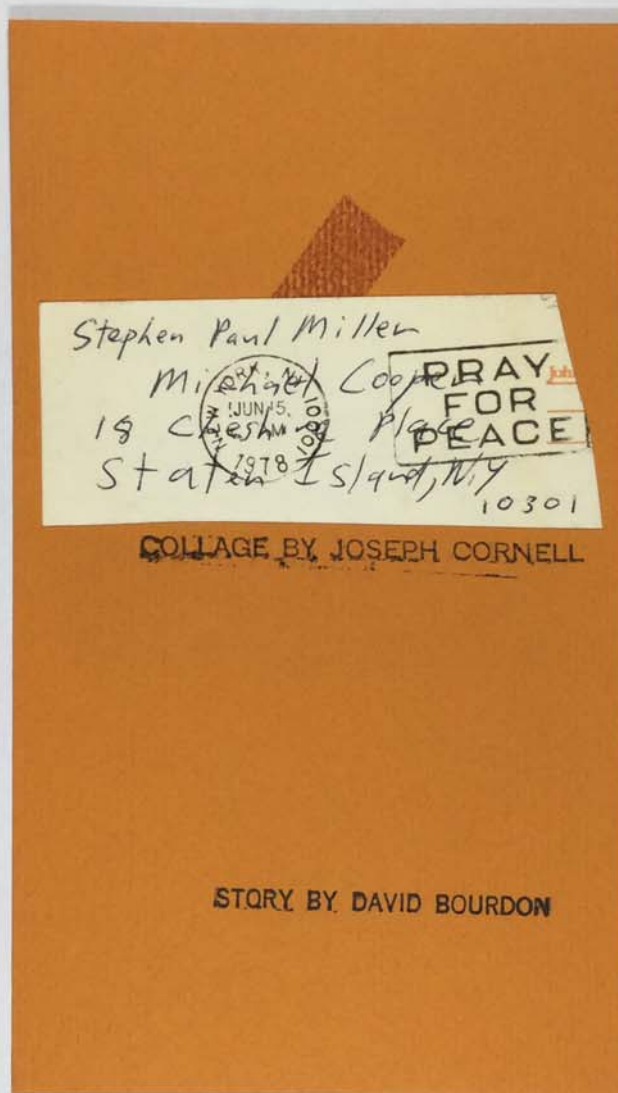 Stephen Paul Miller
Michael Cooper
18 Cheshire Place
Staten Island, N.Y
10301
NEW YORK, N.Y. 10001
JUN 15,
M
1978
PRAY
FOR
PEACE
Joh
COLLAGE BY JOSEPH CORNELL
STORY BY DAVID BOURDON